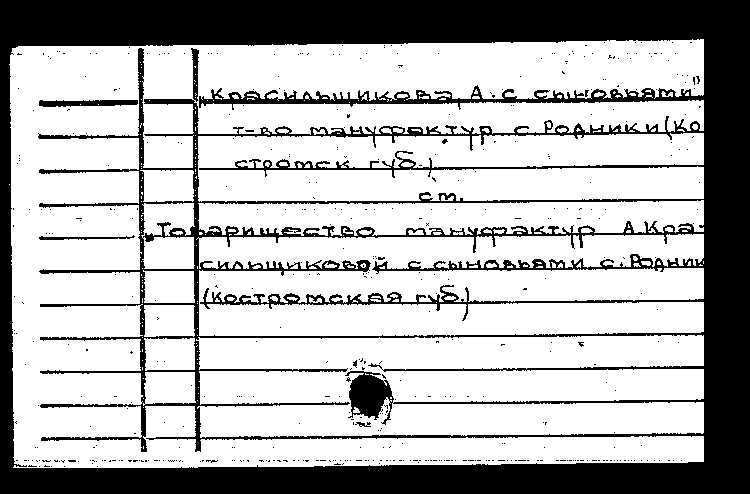 „Красильщикова, А. с сыновьями"
т-во мануфактур с. Родники (Ко
стромск губ.)
см.
„Товарищество мануфактур А. Кра-
сильщиковой с сыновьями с. Родник
(Костромская губ.)